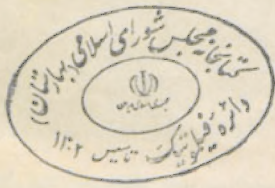 کتابخانه مجلس شورای اسلامی (بهارستان)
جمهوری اسلامی ایران
دائره فیلوتلیک تاسیس ۱۳۰۲